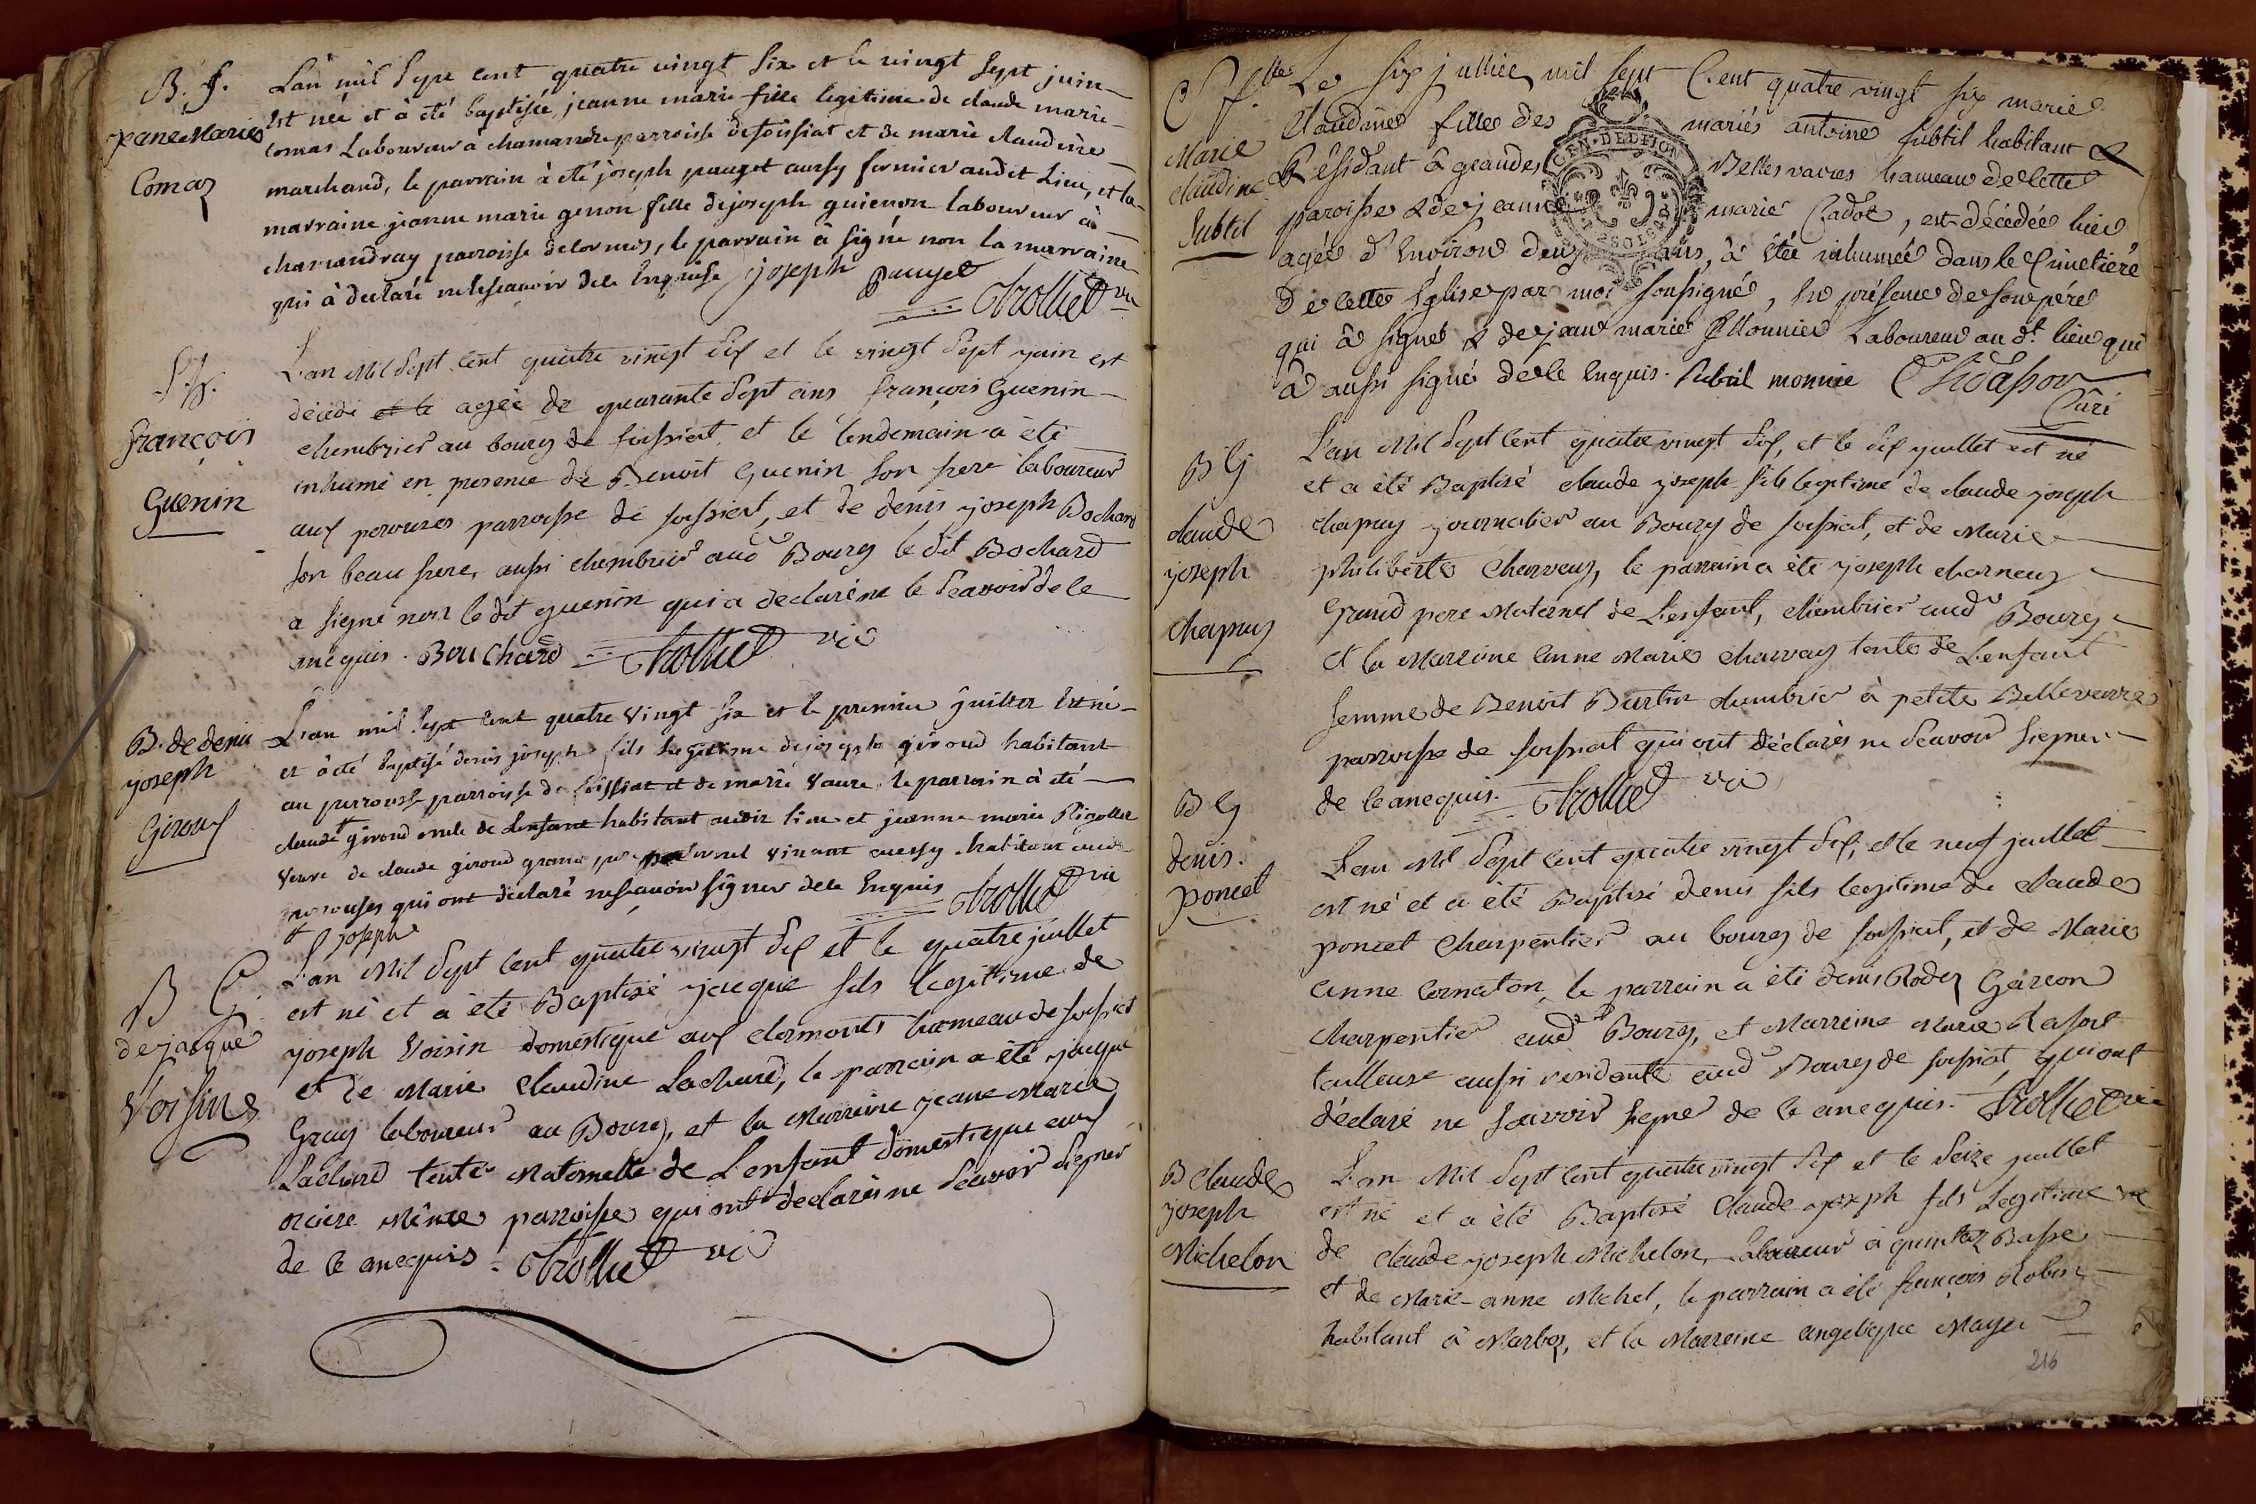 B. f.
jeane Marie
Comas
L'an mil sept cent quatre vingt six et le vingt sept juin
est née et à été baptisée jeanne marie fille legitime de claude marie
comas Laboureur à chamandre parroisse de foissiat et de marie claudine
marchand, le parrain à été joseph pauget aussy fermier audit Lieu, et la
marraine jeanne marie genon fille de joseph guienon laboureur à
chamandray parroisse de cormos, le parrain à signé non la marraine
qui à declaré ne le scavoir de le Enquise joseph pauget
Trolliet vic
S. h.
françois
Guenin
L'an Mil Sept Cent quatre vingt Six et le vingt Sept juin est
décédé et le agée de quarante Sept ans françois Guenin
chembrier au bourg de foissiat, et le lendemain a été
inhumé en presence de Benoit Guenin son frere laboureur
aux perouzes parroisse de foissiat, et de denis joseph Bochard
son beau frere, aussi chembrier aud Bourg le dit Bochard
a signé non le dit guenin qui a declaré ne le Scavoir de le
anequis. Bouchard Trolliet vic
B. de denis
joseph
Giroud
L'an mil sept cent quatre vingt six et le premier juillet Est né
et à été baptisé denis joseph fils legitime de joseph giroud habitant
au perrouse parroisse de foissiat et de marie vaure, le parrain à été
claude giroud oncle de L'enfant habitant audit lieu et jeanne marie Rigollet
veuve de claude giroud grand pere vivant aussy habitant aud
perrouses qui ont déclaré ne scauoir signer dele Enquis Trolliet vic
joseph
B G.
de jacque
Voisin
L'an Mil Sept Cent quatre vingt Six et le quatre juillet
est né et a été Baptisé jacque fils legittime de
joseph Voisin domestique aux clermonts hameau de foissiat
et de Marie Claudine Lachard, le parrain a été jacque
Gray laboureur au Bourg, et la Marreine jeane Marie
Lachard tente Maternelle de L'enfant domestique aux
même parroisse qui ont declarés ne Scavoir Signer
de le anequis. Trolliet vic
C f.lle
Marie
claudine
Subtil
Le six julliet mil sept Cent quatre vingt six marie
Claudine fille des mariés antoine Subtil habitant &
Résidant à grandes Bellesvavres hameau de Cette
paroisse & de jeanne marie Cadot, est décédée hier
agée d'Environ deux ans, à Eté inhumée dans le Cimetiere
de Cette Eglise par moi soussigné, En présence de son pére
qui à signé & de jean marie Monnier Laboureur au dt. lieu qui
à aussi signé de le Enquis. Subtil monnie Chidasson
Curé
GEN. DE DIJON
B G
claude
joseph
chapuy
L'an Mil Sept Cent quatre vingt Six, et le Six juillet est né
et a été Baptisé claude joseph fils legitime de claude joseph
chapuy journalier au Bourg de foissiat, et de Marie
philiberte Charveuy, le parrain a été joseph charneuy
Grand pere Maternel de L'enfant, chembrier aud Bourg
et la Marreine anne Marie charvay tente de L'enfant
femme de Benoit Burtin chembrier à petite Bellevevre
parroisse de foissiat qui ont déclarés ne Scavoir Signer
de le anequis. Trolliet vic
B G
denis.
poncet
L'an Mil Sept Cent quatre vingt Six, et le neuf juillet
est né et a été Baptisé denis fils legitime de claude
poncet Charpentier au bourg de foissiat, et de Marie
anne Cornaton, le parrain a été denis Rodez Garcon
charpentier aud Bourg, et Marreine Marie Rafort
tailleuse aussi residente aud Bourg de foissiat, qui ont
déclaré ne Scavoir Signe de le anequis. Trolliet vic
B claude
joseph
Michelon
L'an Mil Sept Cent quatre vingt Six et le Seize juillet
est né et a été Baptisé Claude joseph fils Legitime
de claude joseph Michelon, Laboureur à quintaz Basse
et de Marie-anne Michel, le parrain a été françois Robin
habitant à Marboz, et la Marreine angelique Mayer
216